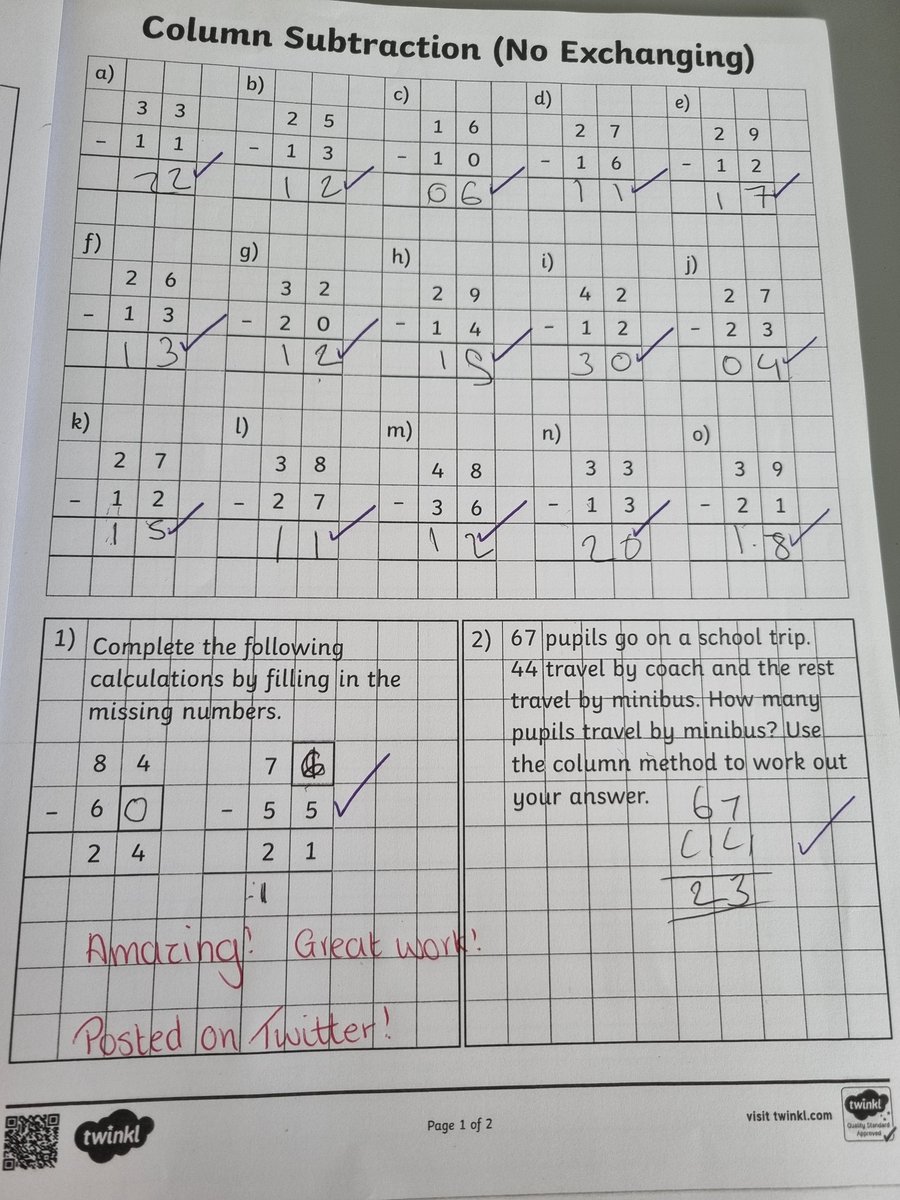 Column Subtraction (No Exchanging)
a) b) c) d) e)
3 3 2 5 1 6 2 7 2 9
- 1 1 - 1 3 - 1 0 - 1 6 - 1 2
2 2 1 2 0 6 1 1 1 7
f) g) h) i) j)
2 6 3 2 2 9 4 2 2 7
- 1 3 - 2 0 - 1 4 - 1 2 - 2 3
1 3 1 2 1 5 3 0 0 4
k) l) m) n) o)
2 7 3 8 4 8 3 3 3 9
- 1 2 - 2 7 - 3 6 - 1 3 - 2 1
1 5 1 1 1 2 2 0 1 8
1) Complete the following
calculations by filling in the
missing numbers.
8 4 7 6
- 6 0 - 5 5
2 4 2 1
Amazing! Great work!
Posted on Twitter!
2) 67 pupils go on a school trip.
44 travel by coach and the rest
travel by minibus. How many
pupils travel by minibus? Use
the column method to work out
your answer.
67
44
23
twinkl
Page 1 of 2
visit twinkl.com
twinkl
Quality Standard
Approved